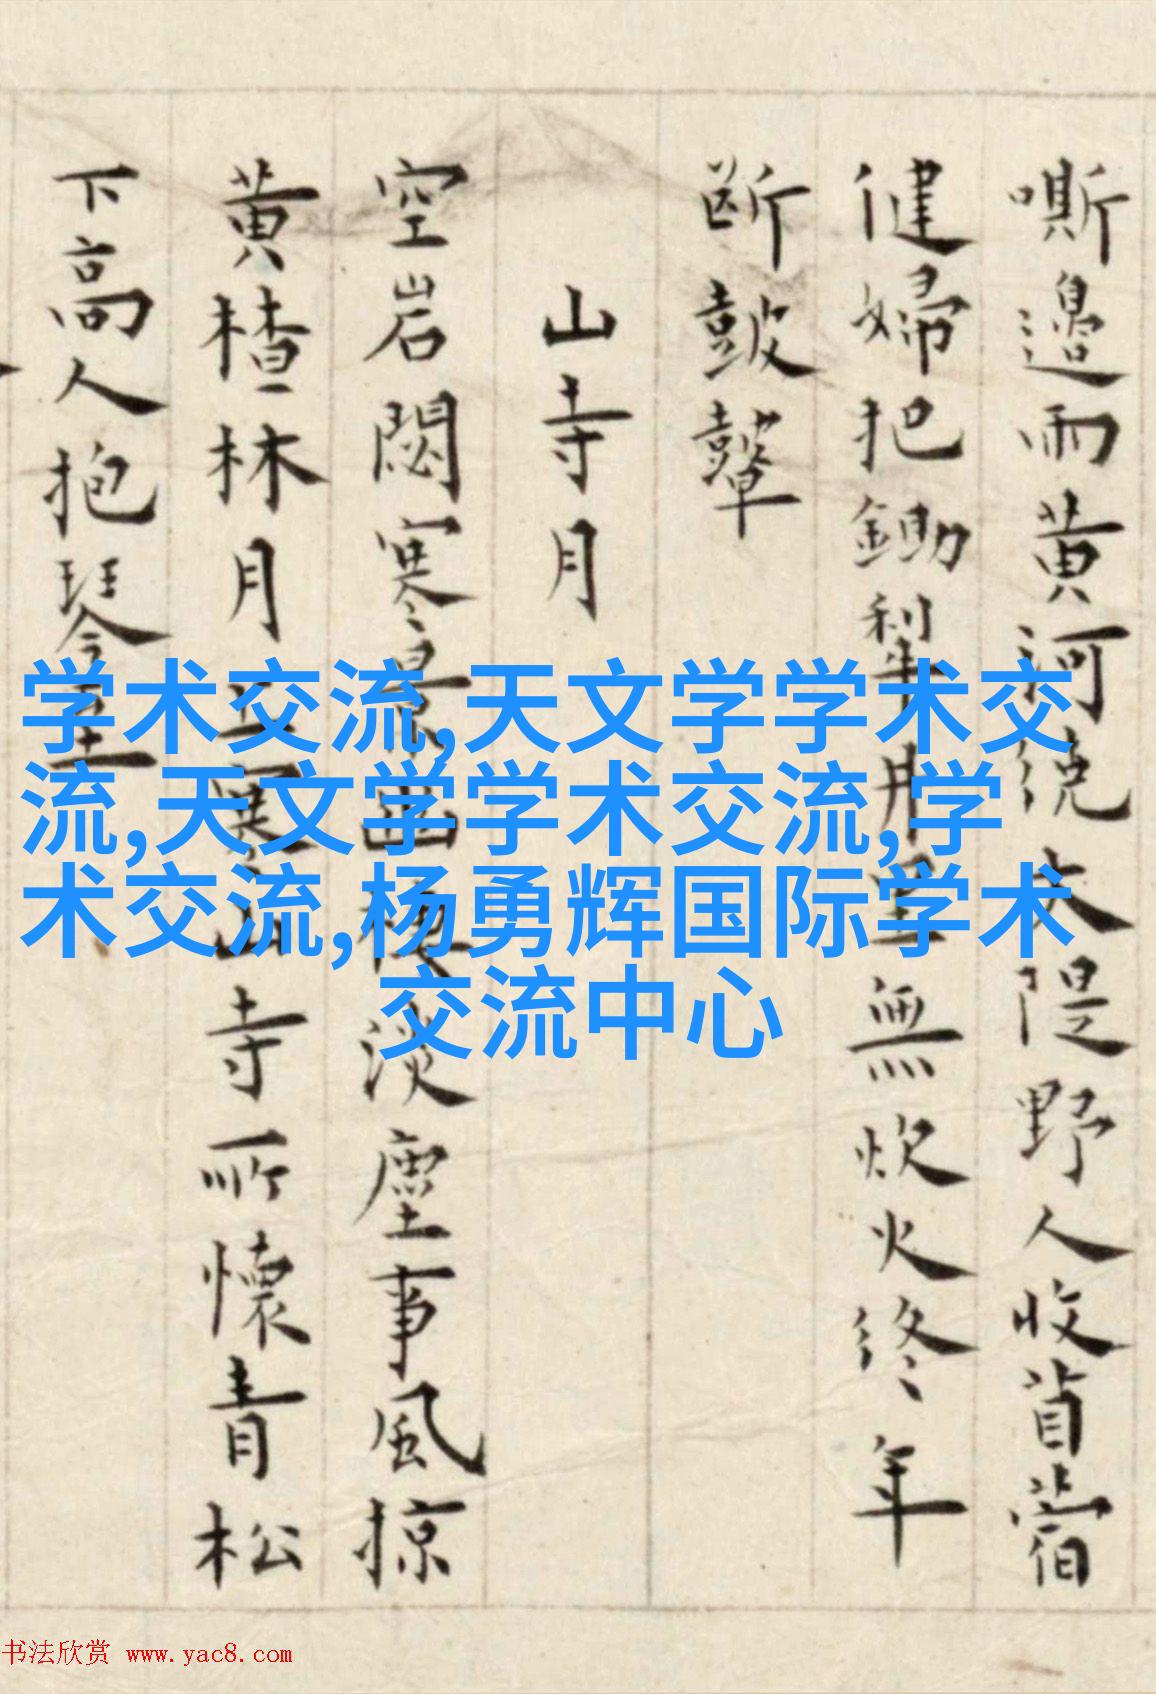 嘶邉雨黄河绕大隄野人收苜蓿
健婦把鋤犁井里無炊火終年
断鼓鼙
山寺月
空岩閟寒景幽棲淡塵事風掠
黄楂林月上深山寺所懷青松
下高人抱琴至
学术交流,天文学学术交
流,天文学学术交流,学
术交流,杨勇辉国际学术
交流中心
书法欣赏 www.yac8.com